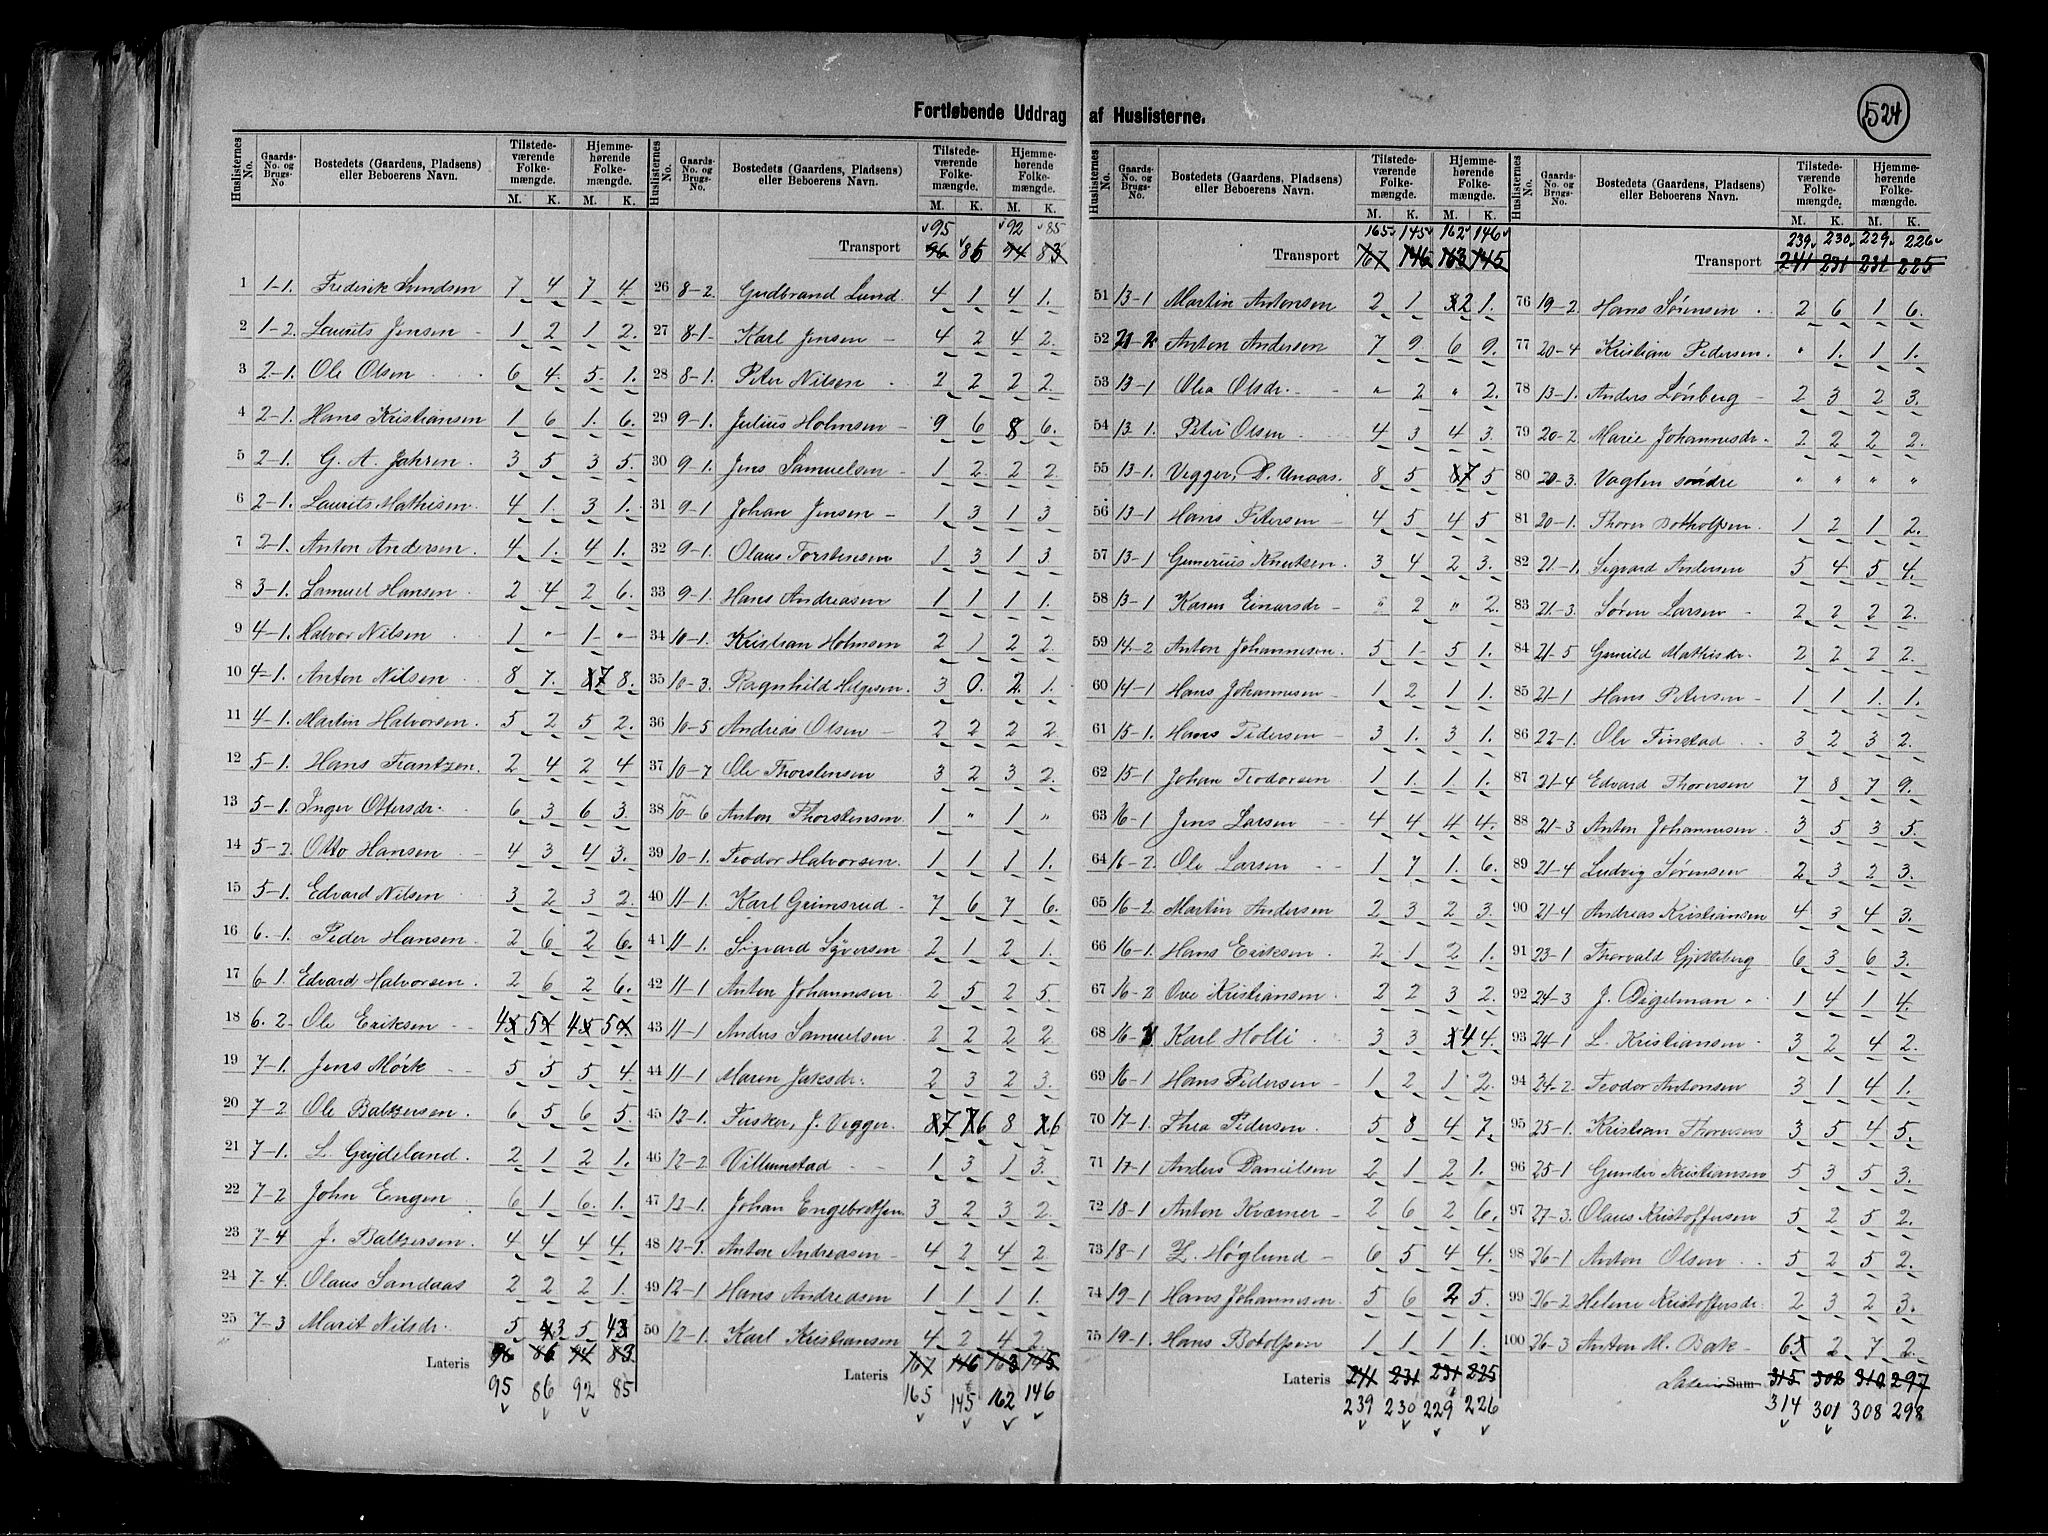 524
Fortløbende Uddrag af Huslisterne.
Huslisternes No. Gaards-No. og Brugs-No Bostedets (Gaardens, Pladsens) eller Beboerens Navn. Tilstede-værende Folke-mængde. M. K. Hjemme-hørende Folke-mængde. M. K.
1 1-1. Frederik Svendsen 7 4 7 4
2 1-2. Laurits Jensen 1 2 1 2.
3 2-1. Ole Olsen 6 4 5 1.
4 2-1. Hans Kristiansen 1 6 1 6.
5 2-1. G. A. Jahren. 3 5 3 5.
6 2-1. Laurits Mathisen. 4 1. 3 1.
7 2-1. Anton Andersen. 4 1. 4 1.
8 3-1. Samuel Hansen. 2 4 2 6.
9 4-1. Halvor Nilsen 1 " 1 "
10 4-1. Anton Nilsen 8 7. 7 8.
11 4-1. Martin Halvorsen. 5 2 5 2.
12 5-1. Hans Frantzen. 2 4 2 4
13 5-1. Inger Ottersdr. 6 3 6 3.
14 5-2. Otto Hansen 4 3 4 3.
15 5-1. Edvard Nilsen 3 2 3 2.
16 6-1. Peder Hansen. 2 6 2 6.
17 6-1 Edvard Halvorsen. 2 6 2 6.
18 6-2. Ole Eriksen 4 5 4 5
19 7-1. Jens Mörk 5 5 5 4
20 7-2 Ole Baltzersen. 6 5 6 5.
21 7-1. L. Gujdeland. 2 1 2 1.
22 7-2 John Engen 6 1 6. 1.
23 7-4 J. Baltzersen. 4 4 4 4.
24 7-4. Olaus Sandaas 2 2 2 1.
25 7-3 Marit Nilsdr. 5 3 5 3
Lateris 96 86 94 83
95 86 92 85
Huslisternes No. Gaards-No. og Brugs-No. Bostedets (Gaardens, Pladsens) eller Beboerens Navn. Tilstede-værende Folke-mængde. M. K. Hjemme-hørende Folke-mængde. M. K.
95 92 85
Transport 96 86 94 83
26 8-2. Gudbrand Lund. 4 1 4 1.
27 8-1. Karl Jensen 4 2 4 2.
28 8-1. Peter Nilsen 2 2 2 2.
29 9-1. Julius Holmsen 9 6 8 6.
30 9-1. Jens Samuelsen 1 2 2 2
31 9-1 Johan Jensen 1 3 1 3
32 9-1. Olaus Torstensen 1 3 1 3
33 9-1. Hans Andreasen 1 1 1 1.
34 10-1. Kristian Holmsen 2 1 2 2
35 10-3. Ragnhild Helgesen. 3 0. 2 1.
36 10-5 Andreas Olsen 2 2 2 2
37 10-7 Ole Thorstensen 3 2 3 2.
38 10-6 Anton Thorstensen 1 " 1 "
39 10-1. Teodor Halvorsen. 1 1 1 1.
40 11-1. Karl Grimsrud 7 6 7 6.
41 11-1. Sigvard Syversen 2 1 2 1.
42 11-1 Anton Johannesen. 2 5 2 5.
43 11-1 Anders Samuelsen. 2 2 2 2
44 11-1 Maren Jaksdr. 2 3 2 3.
45 12-1. Fusker, J. Vegger. 7 6 8 6
46 12-2 Villumstad 1 3 1 3.
47 12-1. Johan Engebretsen. 3 2 3 2.
48 12-1. Anton Andreasen 4 2 4 2
49 12-1 Hans Andreasen 1 1 1 1.
50 12-1. Karl Kristiansen 4 2 4 2.
Lateris 167 146 163 145
165 145 162 146
Huslisternes No. Gaards-No. og Brugs-No. Bostedets (Gaardens, Pladsens) eller Beboerens Navn. Tilstede-værende Folke-mængde. M. K. Hjemme-hørende Folke-mængde. M. K.
165 145 162 146
Transport 167 146 163 145
51 13-1 Martin Antonsen 2 1 2 1.
52 21-2 Anton Andersen 7 9 6 9.
53 13-1 Olea Olsdr. " 2 " 2.
54 13-1. Peter Olsen 4 3 4 3.
55 13-1. Vegger, D. Unaas. 8 5 7 5
56 13-1 Hans Petersen 4 5 4 5
57 13-1 Gunerius Knutsen. 3 4 2 3.
58 13-1 Karen Einarsdr " 2 " 2.
59 14-2 Anton Johannesen. 5 1 5 1.
60 14-1 Hans Johannesen 1 2 1 1.
61 15-1. Hans Pedersen 3 1. 3 1.
62 15-1 Johan Teodorsen 1 1 1 1.
63 16-1 Jens Larsen 4 4 4 4.
64 16-2. Ole Larsen 1 7 1. 6.
65 16-2 Martin Andersen 2 3 2 3.
66 16-1. Hans Eriksen 2 1 2 1.
67 16-2 Ove Kristiansen. 2 2 3 2.
68 16- Karl Holli 3 3 4 4.
69 16-1 Hans Pedersen 1 2 1 2.
70 17-1. Thea Pedersen. 5 8 4 7.
71 17-1 Anders Danielsen 2 1 2 1.
72 18-1 Anton Kværner 2 6 2 6.
73 18-1 Z. Höglund 6 5 4 4.
74 19-1 Hans Johannesen. 5 6 2 5.
75 19-1. Hans Botolfsen 1 1 1 1.
Lateris 241 231 231 225
239 230 229 226
Huslisternes No. Gaards-No. og Brugs-No. Bostedets (Gaardens, Pladsens) eller Beboerens Navn. Tilstede-værende Folke-mængde. M. K. Hjemme-hørende Folke-mængde. M. K.
239 230 229 226
Transport 241 231 231 225
76 19-2. Hans Sørensen 2 6 1 6.
77 20-4 Kristian Pedersen. " 1. 1 1.
78 13-1. Anders Lönberg 2 3 2 3.
79 20-2. Marie Johannesdr. 2 2 2 2.
80 20-3. Vaglen søndre " " " "
81 20-1. Thorer Botholfsen. 1 2 1 2.
82 21-1. Segvard Andersen 5 4 5 4.
83 21-3. Søren Larsen 2 2 2 2.
84 21-5 Gunild Mathisdr. 2 2 2 2.
85 21-1 Hans Petersen 1 1 1 1.
86 22-1. Ole Finstad 3 2 3 2.
87 21-4 Edvard Thoresen 7 8 7 9.
88 21-3 Anton Johannesen. 3 5 3 5.
89 21-4 Ludvig Sørensen 2 3 2 3.
90 21-4 Andreas Kristiansen 4 3 4 3.
91 23-1 Thorvald Gjetteberg 6 3 6 3.
92 24-3 J. Digelman 1 4 1 4.
93 24-1 L. Kristiansen 3 2 4 2.
94 24-2 Teodor Antonsen 3 1 4 1.
95 25-1. Kristian Thoresen 3 5 4 5.
96 25-1 Gunder Kristiansen 5 3 5 3.
97 27-3. Olaus Kristoffersen 5 2 5 2.
98 26-1 Anton Olsen 5 2 5 2.
99 26-2 Helene Kristoffersdr. 2 3 2 3.
100 26-3 Anton M. Bak 6 2 7 2.
Lateris Sum 315 302 310 297
314 301 308 298